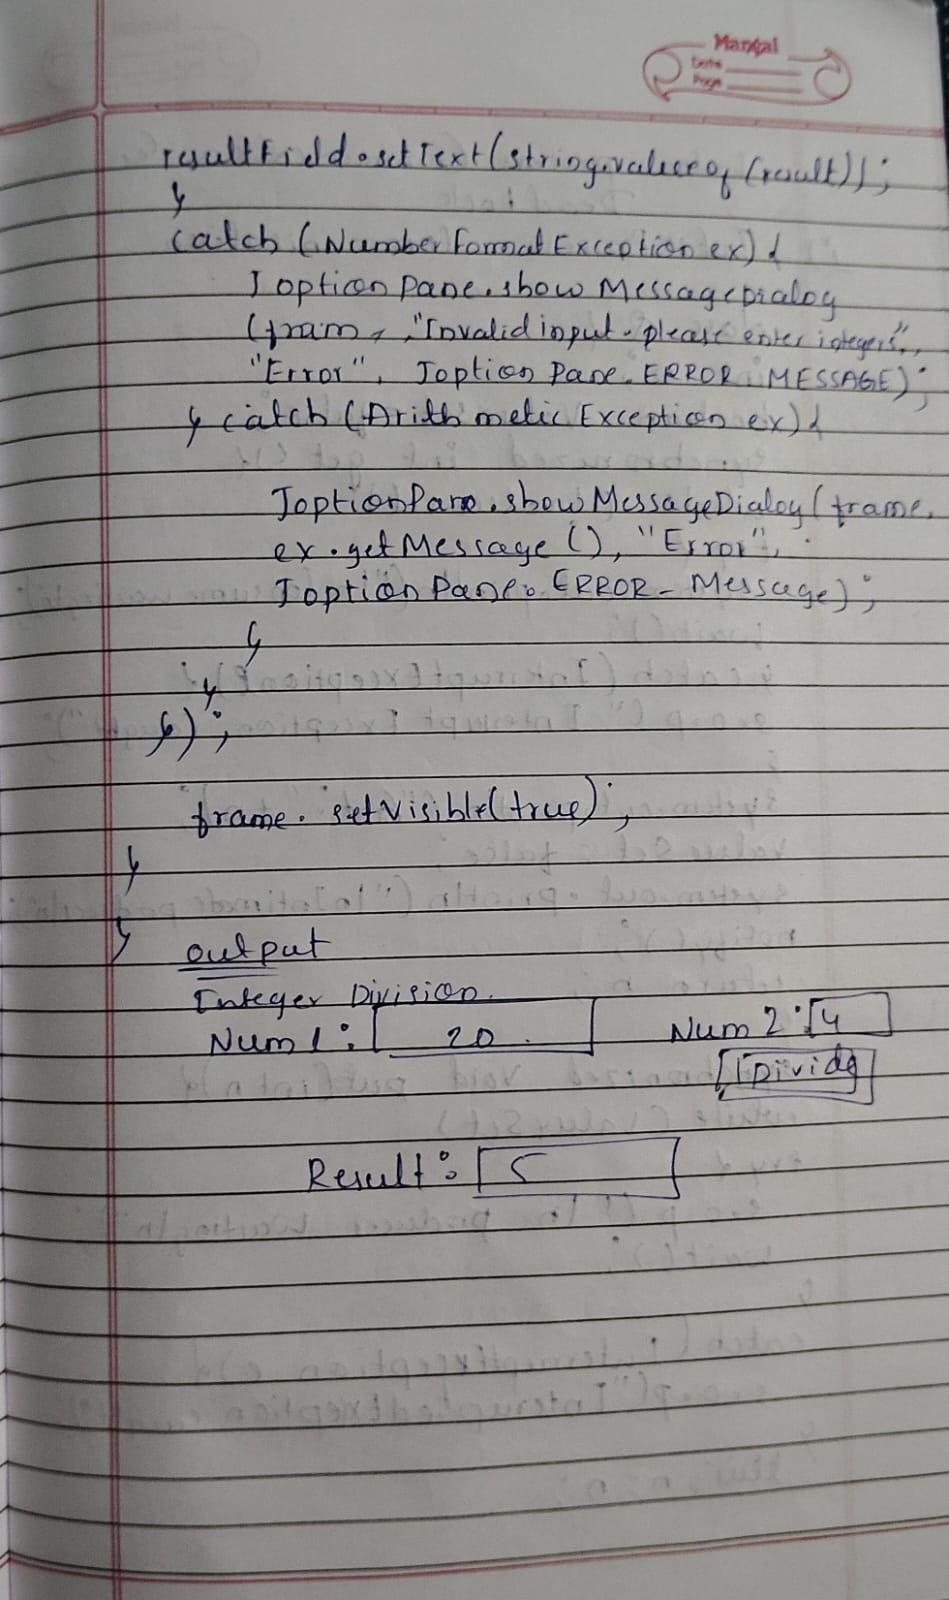 Mangal
Date
Page
resultField.setText(string.valueof(result));
}
catch (NumberFormatException ex) {
JoptionPane.showMessageDialog
(fram, "Invalid input. please enter integers",
"Error", JoptionPane.ERROR_MESSAGE);
} catch (Arithmetic Exception ex) {
JoptionPane.showMessageDialog(frame,
ex.getMessage(), "Error",
JoptionPane.ERROR_Message);
}
}
});
frame.setVisible(true);
}
}
output
Integer Division
Num1: 20 Num2: 4
Divide
Result: 5